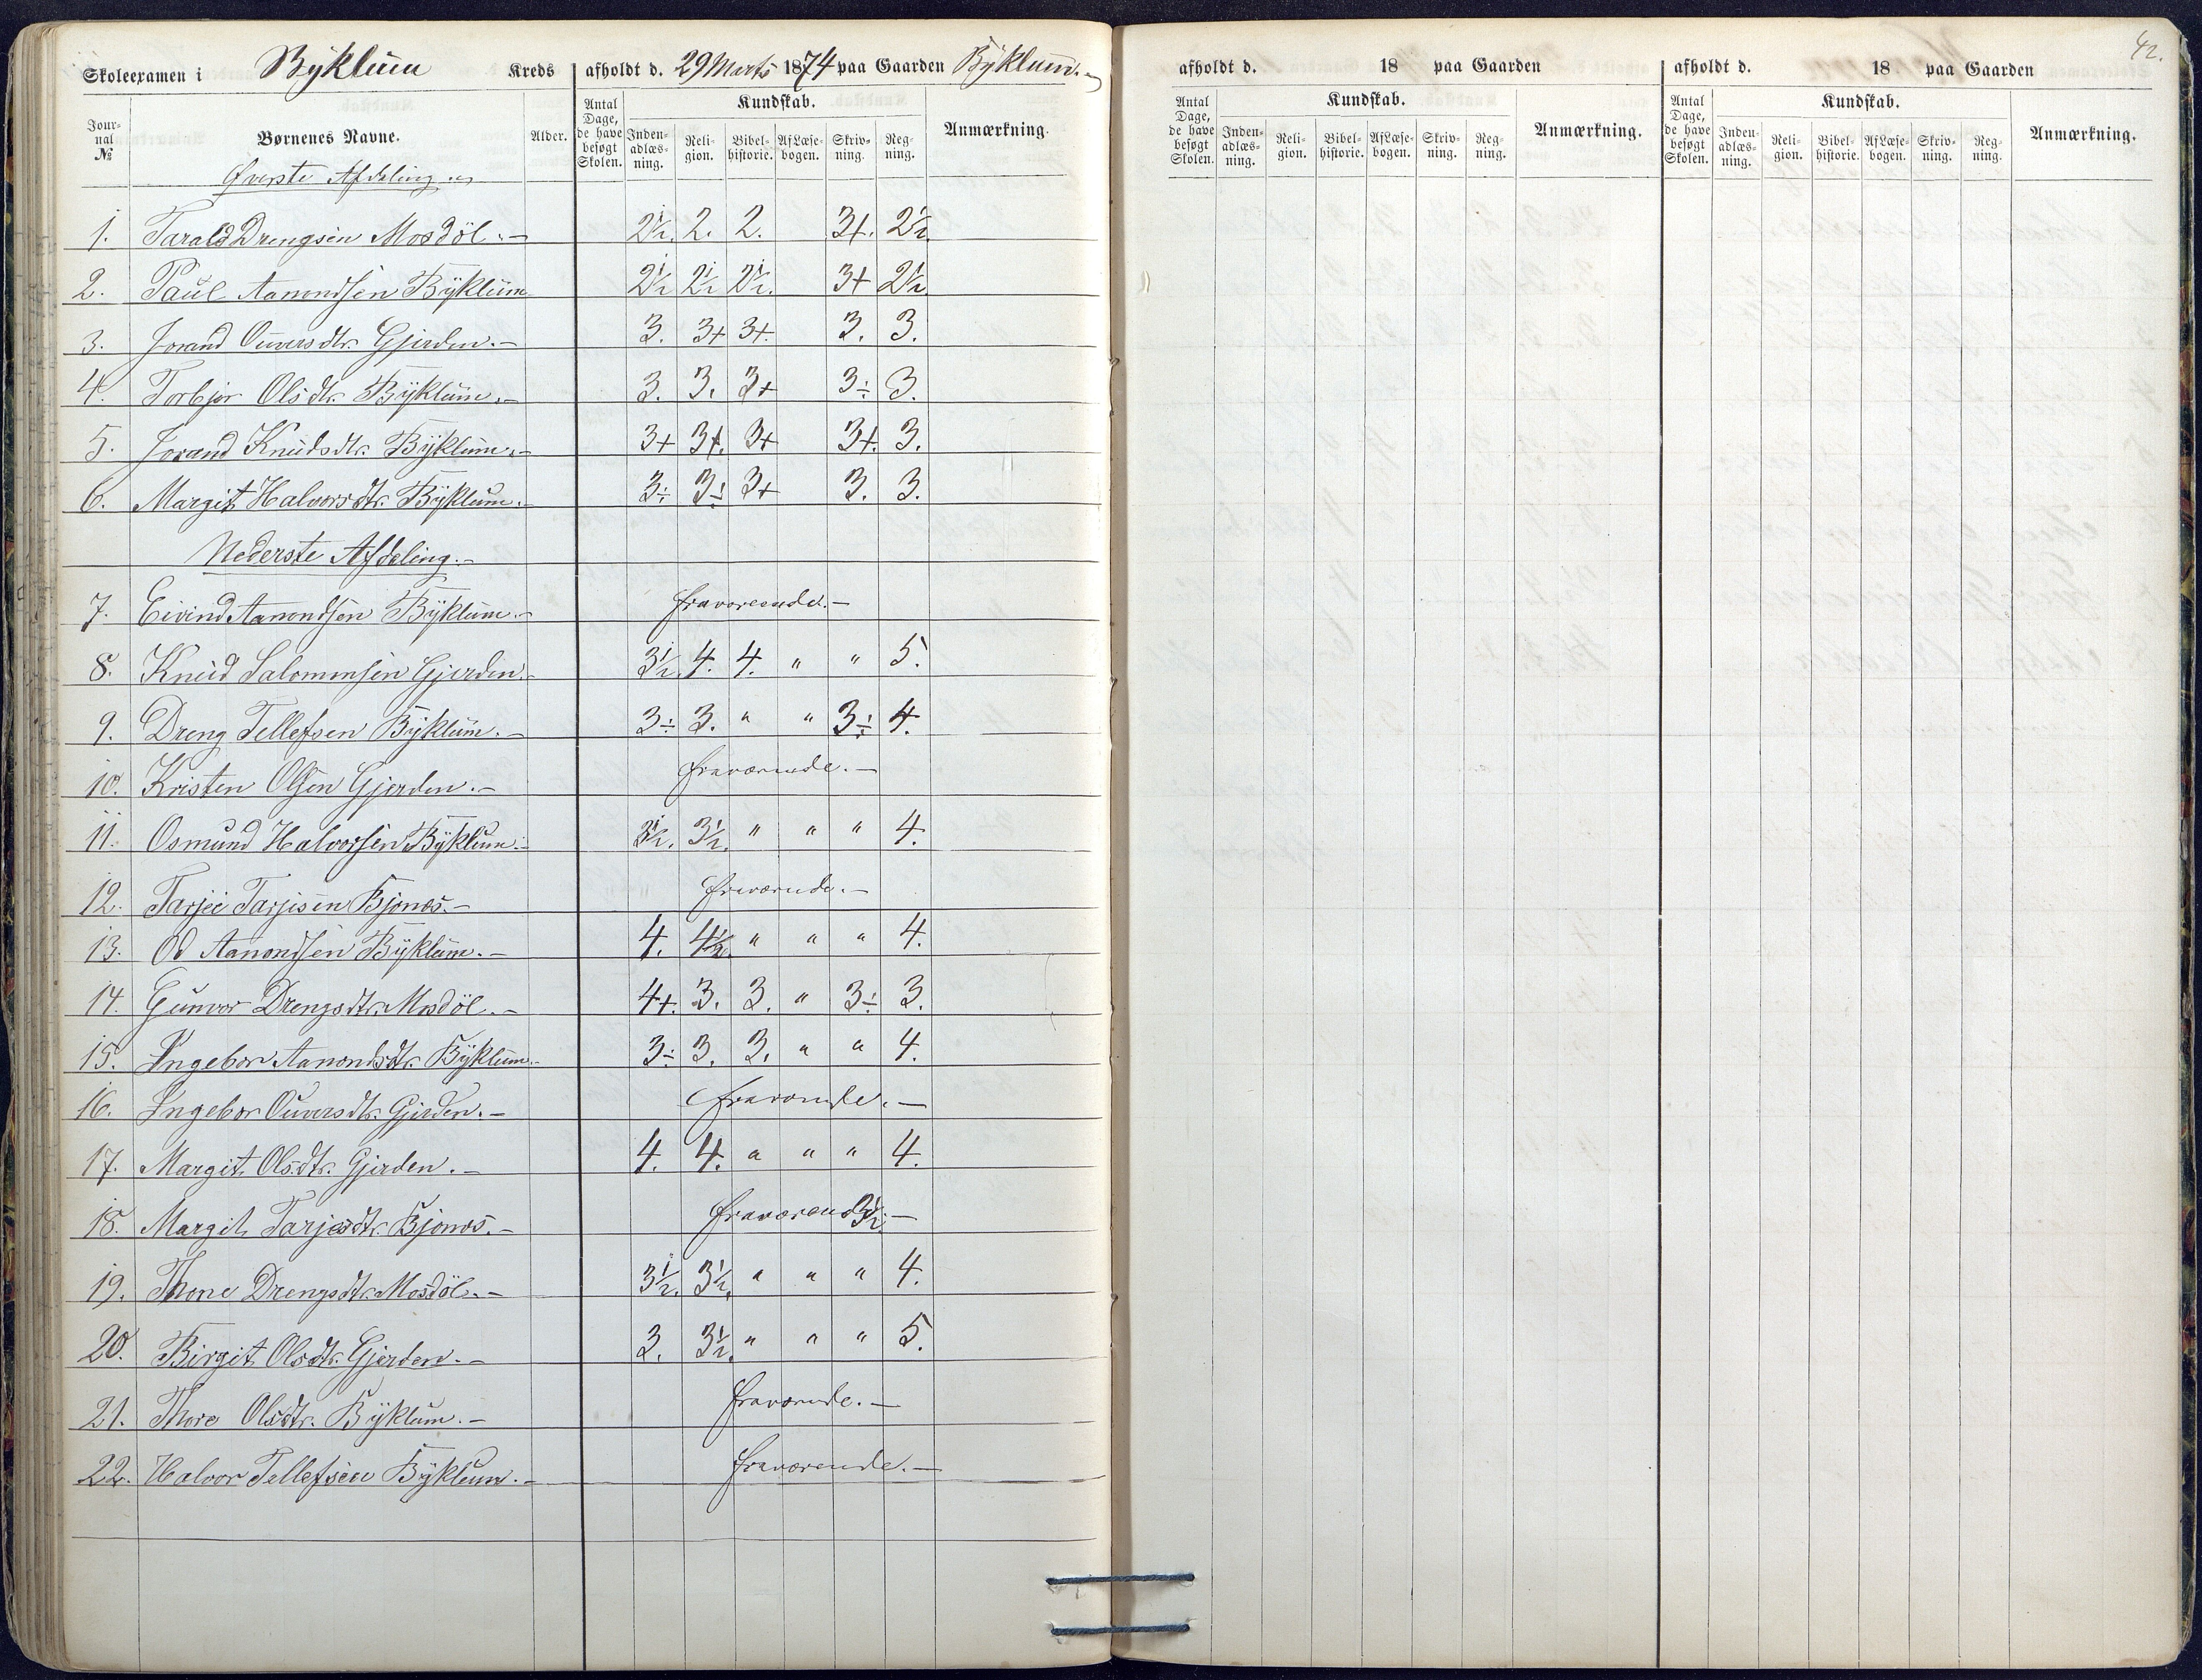 Skoleexamen i Byklum Kreds afholdt d. 29 Marts 1874 paa Gaarden Byklum.
Jour-nal № Børnenes Navne. Alder. Antal Dage, de have besøgt Skolen. Kundskab. Inden-adlæs-ning. Reli-gion. Bibel-historie. Af Læse-bogen. Skriv-ning. Reg-ning. Anmærkning.
Øverste Afdeling
1. Tarald Drengsen Mosdöl. – 2½. 2. 2. 3+. 2½.
2. Paul Aanondsen Byklum 2½ 2½ 2½. 3+ 2½.
3. Jorand Ouversdtr. Gjerden. – 3. 3+ 3+. 3. 3.
4. Torbjør Olsdtr. Byklum. – 3. 3. 3+ 3÷ 3.
5. Jorand Knudsdtr. Byklum. – 3+ 3+. 3+ 3+. 3.
6. Margit Halvorsdtr. Byklum. – 3÷ 3÷ 3+ 3. 3.
Nederste Afdeling. –
7. Eivind Aanondsen Byklum. – fraværende. –
8. Knud Salomonsen Gjerden. – 3½. 4. 4. " " 5.
9. Dreng Tellefsen Byklum. – 3÷ 3. " " 3÷ 4.
10. Kristen Olsen Gjerden. – fraværende. –
11. Osmund Halvorsen Byklum. – 3½. 3½. " " " 4.
12. Tarjei Tarjisen Bjones. – fraværende. –
13. Od Aanondsen Byklum. – 4. 4½. " " " 4.
14. Gunvor Drengsdtr. Mosdöl. – 4+. 3. 3. " 3÷ 3.
15. Ingebor Aanondsdtr. Byklum. – 3÷ 3. 3. " " 4.
16. Ingebor Ouversdtr. Gjerden. – fraværende. –
17. Margit Olsdtr. Gjerden. – 4. 4. " " " 4.
18. Margit Tarjesdtr. Bjones. – fraværende 3½. –
19. Thone Drengsdtr. Mosdöl. – 3½. 3½. " " " 4.
20. Birgit Olsdtr. Gjerden. – 3. 3½. " " " 5.
21. Thore Olsdtr. Byklum. – fraværende. –
22. Halvor Tellefsen Byklum. – fraværende. –
42.
afholdt d. 18 paa Gaarden
Antal Dage, de have besøgt Skolen. Kundskab. Inden-adlæs-ning. Reli-gion. Bibel-historie. Af Læse-bogen. Skriv-ning. Reg-ning. Anmærkning.
afholdt d. 18 paa Gaarden
Antal Dage, de have besøgt Skolen. Kundskab. Inden-adlæs-ning. Reli-gion. Bibel-historie. Af Læse-bogen. Skriv-ning. Reg-ning. Anmærkning.